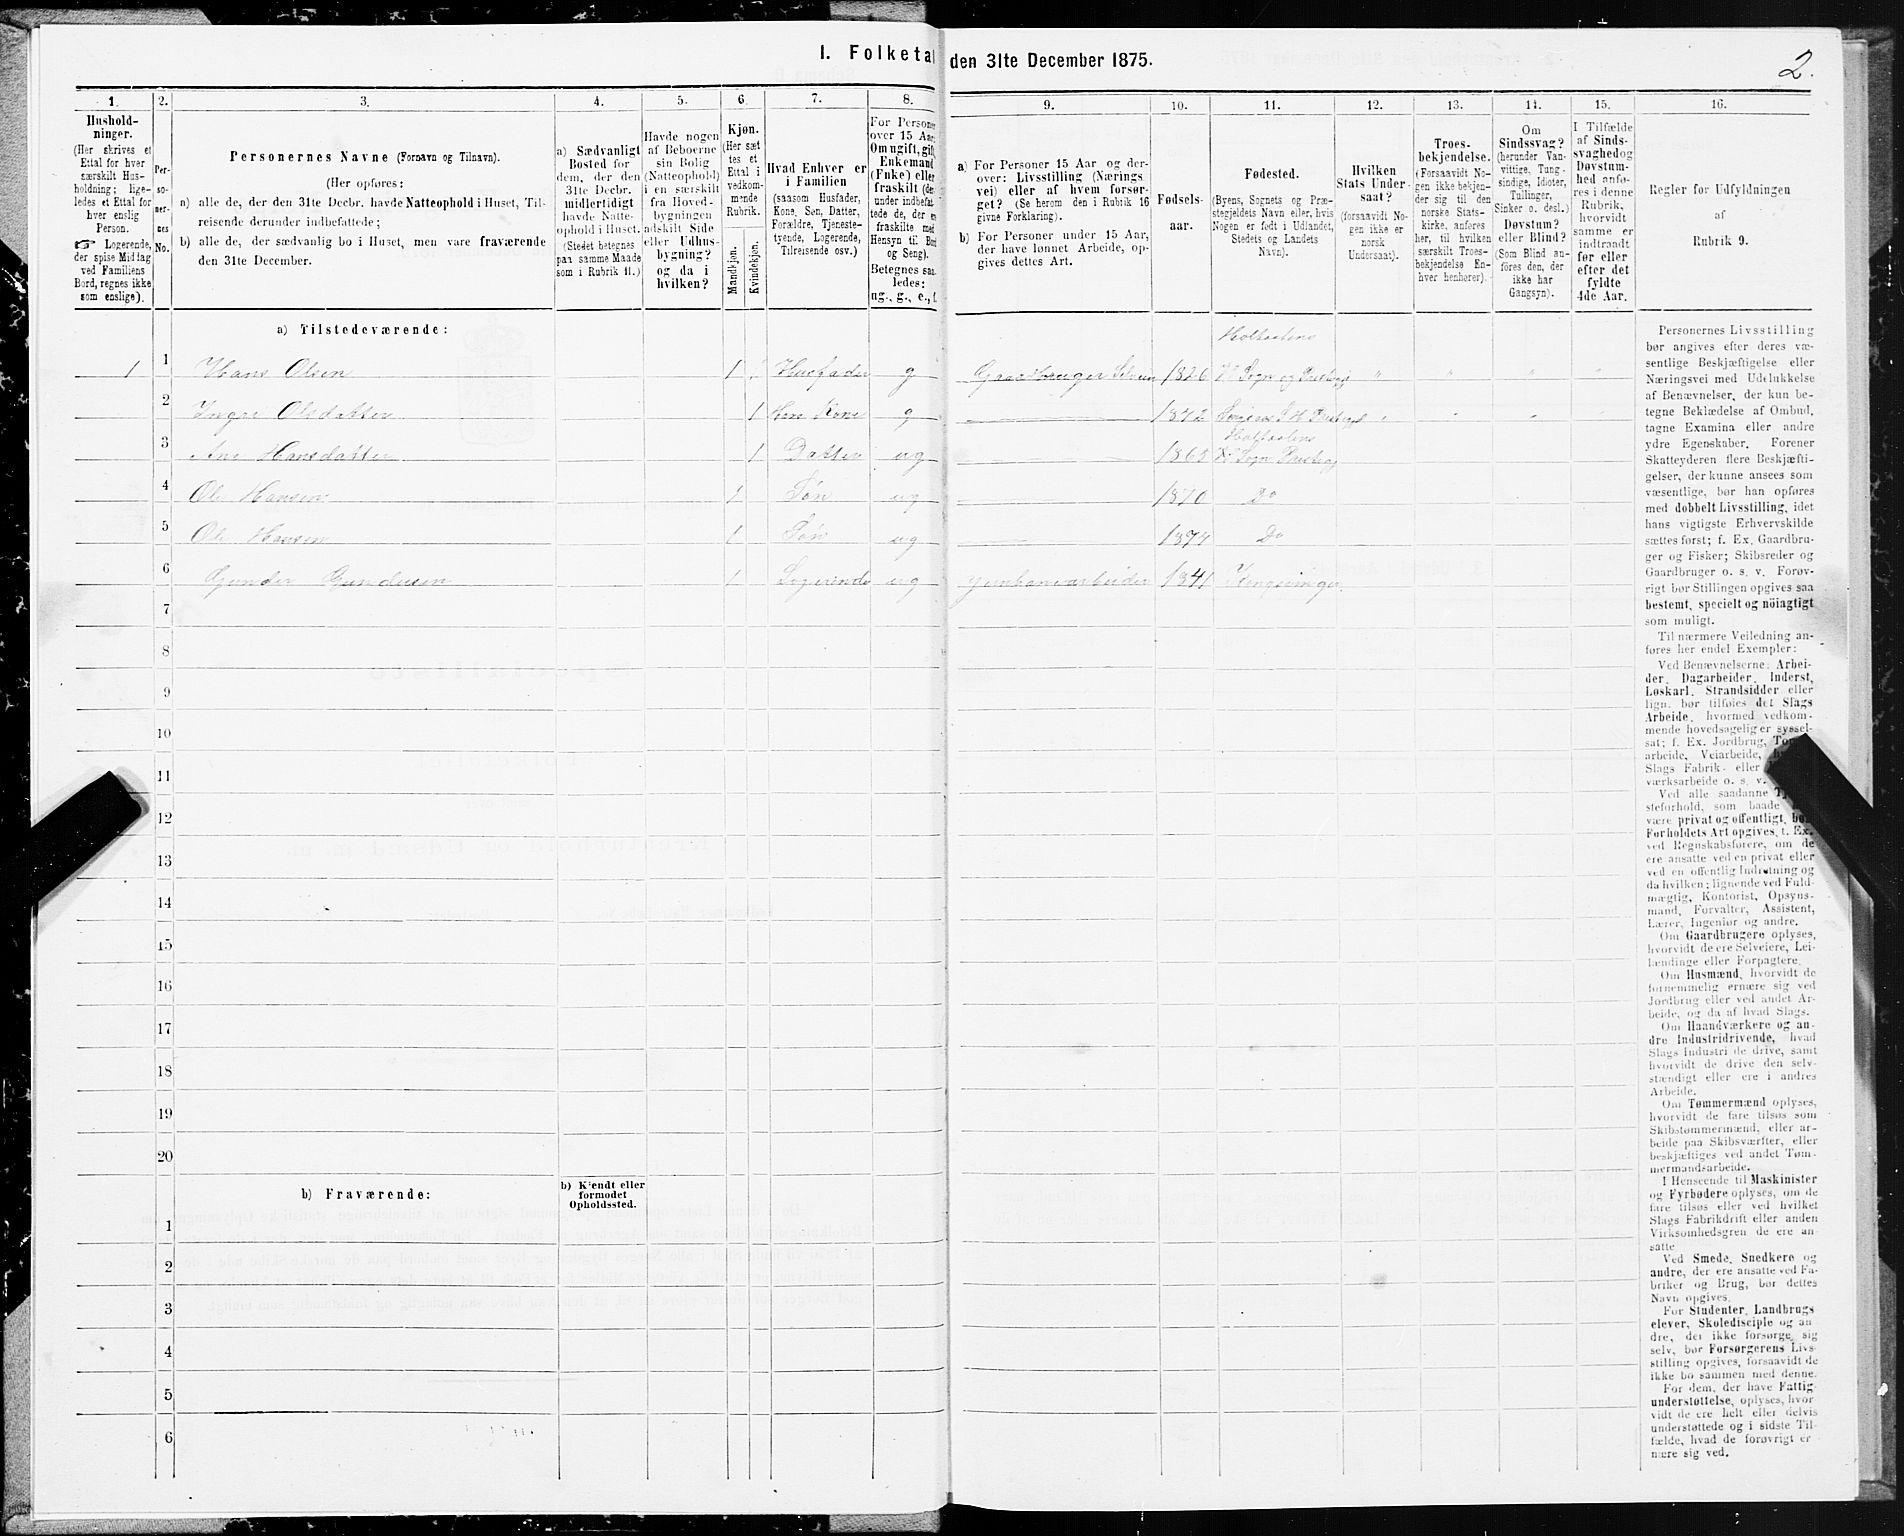 I. Folketal den 31te December 1875.
2.
1.
Hushold-
ninger.
(Her skrives et
Ettal for hver
særskilt Hus-
holdning; lige-
ledes et Ettal for
hver enslig
Person.
☞ Logerende,
der spise Middag
ved Familiens
Bord, regnes ikke
som enslige).
2.
Per-
so-
ner-
nes
No.
3.
Personernes Navne (Fornavn og Tilnavn).
(Her opføres:
a) alle de, der den 31te Decbr. havde Natteophold i Huset, Til-
reisende derunder indbefattede;
b) alle de, der sædvanlig bo i Huset, men vare fraværende
den 31te December.
4.
a) Sædvanligt
Bosted for
dem, der den
31te Decbr.
midlertidigt
havde Natte-
ophold i Huset.
(Stedet betegnes
paa samme Maade
som i Rubrik 11.)
5.
Havde nogen
af Beboerne
sin Bolig
(Natteophold)
i en særskilt
fra Hoved-
bygningen
adskilt Side
eller Udhus-
bygning?
og da i
hvilken?
6.
Kjøn.
(Her sæt
tes et
Ettal i
vedkom-
mende
Rubrik.
Mandkjøn.
Kvindekjøn.
7.
Hvad Enhver er
i Familien
(saasom Husfader,
Kone, Søn, Datter,
Forældre, Tjeneste-
tyende, Logerende,
Tilreisende osv.)
8.
For Personer
over 15 Aar:
Om ugift, gift,
Enkemand
(Enke) eller
fraskilt (der-
under indbefat-
tede de, der er
fraskilte med
Hensyn til Bord
og Seng).
Betegnes saa-
ledes:
ug., g., e., f.
9.
a) For Personer 15 Aar og der-
over: Livsstilling (Nærings-
vei) eller af hvem forsør-
get? (Se herom den i Rubrik 16
givne Forklaring).
b) For Personer under 15 Aar,
der have lønnet Arbeide, op-
gives dettes Art.
10.
Fødsels-
aar.
11.
Fødested.
(Byens, Sognets og Præ-
stegjeldets Navn eller, hvis
Nogen er født i Udlandet,
Stedets og Landets
Navn).
12.
Hvilken
Stats Under-
saat?
(forsaavidt No-
gen ikke er
norsk
Undersaat).
13.
Troes-
bekjendelse.
(Forsaavidt No-
gen ikke bekjen-
der sig til den
norske Stats-
kirke, anføres
her, til hvilken
særskilt Troes-
bekjendelse En-
hver henhører).
14.
Om
Sindssvag?
(herunder Van-
vittige, Tung-
sindige, Idioter,
Tullinger,
Sinker o. desl.)
Døvstum?
eller Blind?
(Som Blind an-
føres den, der
ikke har
Gangsyn).
15.
I Tilfælde
af Sinds-
svaghed og
Døvstum-
hed anfø-
res i denne
Rubrik,
hvorvidt
samme er
indtraadt
før eller
efter det
fyldte
4de Aar.
16.
Regler for Udfyldningen
af
Rubrik 9.
a) Tilstedeværende:
Holtaalens
1 1 Hans Olsen 1 Husfader g Gaardbruger Selveier 1826 H Sogn og Prestegj " " " "
2 Ingri Olsdatter 1 Hans Kone g 1842 " " "
Holtaalens
3 Ane Hansdatter 1 Datter ug 1865 Sogn Prestegj
4 Ole Hansen 1 Søn ug 1870 Do
5 Ole Hansen 1 Søn ug 1874 Do
6 Gunder Gundersen 1 Logerende ug Jernbanearbeider 1841 Kongsvinger
7
8
9
10
11
12
13
14
15
16
17
18
19
20
b) Fraværende:
b) Kjendt eller
formodet
Opholdssted.
1
2
3
4
5
6
Personernes Livsstilling
bør angives efter deres væ-
sentlige Beskjæftigelse eller
Næringsvei med Udelukkelse
af Benævnelser, der kun be-
tegne Beklædelse af Ombud,
tagne Examina eller andre
ydre Egenskaber. Forener
Skatteyderen flere Beskjæfti-
gelser, der kunne ansees som
væsentlige, bør han opføres
med dobbelt Livsstilling, idet
hans vigtigste Erhvervskilde
sættes først; f. Ex. Gaardbru-
ger og Fisker; Skibsreder og
Gaardbruger o. s. v. Forøv-
rigt bør Stillingen opgives saa
bestemt, specielt og nöiagtigt
som muligt.
Til nærmere Veiledning an-
føres her endel Exempler:
Ved Benævnelserne: Arbei-
der, Dagarbeider, Inderst,
Løskarl, Strandsidder eller
lign. bør tilføies det Slags
Arbeide, hvormed vedkom-
mende hovedsagelig er syssel-
sat; f. Ex. Jordbrug,
arbeide, Veiarbeide,
Slags Fabrik- eller
værksarbeide o. s. v.
Ved alle saadanne
steforhold, som baade
være privat og offentlig, bør
Forholdets Art opgives, t. Ex.
ved Regnskabsførere, om de
ere ansatte ved en privat eller
ved en offentlig Indretning og
da hvilken; lignende ved Fuld-
mægtig, Kontorist, Opsyns-
mand, Forvalter, Assistent,
Lærer, Ingeniør og andre.
Om Gaardbrugere oplyses,
hvorvidt de ere Selveiere, Lei-
lændinge eller Forpagtere.
Om Husmænd, hvorvidt de
fornemmelig ernære sig ved
Jordbrug eller ved andet Ar-
beide, og da af hvad Slags.
Om Haandværkere og an-
dre Industridrivende, hvad
Slags Industri de drive, samt
hvorvidt de drive den selv-
stændigt eller ere i andres
Arbeide.
Om Tømmermænd oplyses,
hvorvidt de fare tilsøs som
Skibstømmermænd, eller ar-
beide paa Skibsværfter, eller
beskjæftiges ved andet Tøm-
mermandsarbeide.
I Henseende til Maskinister
og Fyrbødere oplyses, om de
fare tilsøs eller ved hvilket
Slags Fabrikdrift eller anden
Virksomhedsgren de ere an-
satte.
Ved Smede, Snedkere og
andre, der ere ansatte ved Fa-
briker og Brug, bør dettes
Navn opgives.
For Studenter, Landbrugs
elever, Skoledisciple og an-
dre, der ikke forsørge sig
selv, bør Forsørgerens Livs-
stilling opgives, forsaavidt de
ikke bo sammen med denne.
For dem, der have Fattig-
understøttelse, oplyses, hvor-
vidt de ere helt eller delvis
understøttede og i sidste Til-
fælde, hvad de forøvrigt er-
nære sig ved.